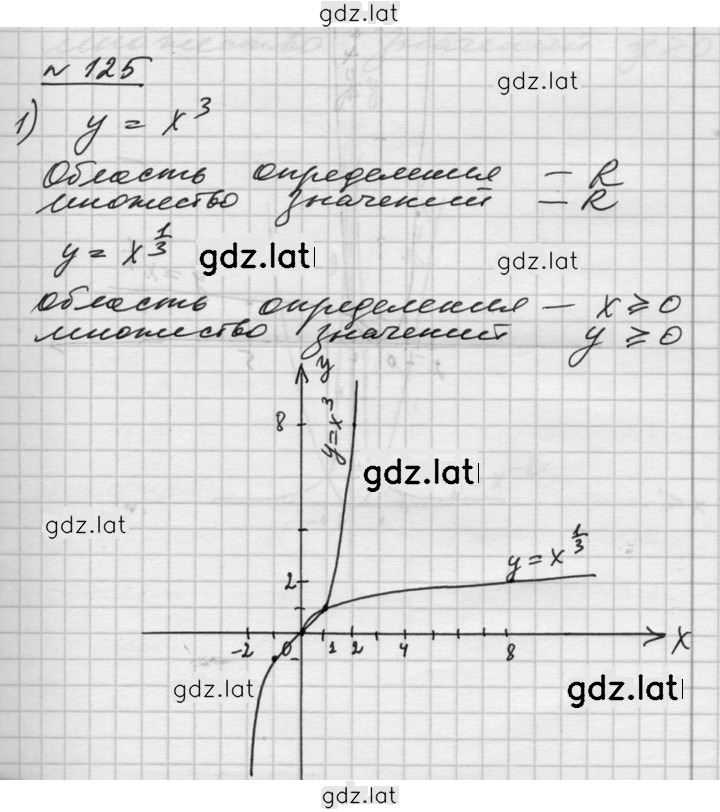 gdz.lat
№ 125
gdz.lat
1) y = x³
Область определения — R
множество значений — R
y = x^{1/3}
gdz.lat
gdz.lat
область определения — x ⩾ 0
множество значений y ⩾ 0
y
8
y=x³
gdz.lat
gdz.lat
y = x^{1/3}
2
-2 0 1 2 4 8 x
gdz.lat
gdz.lat
gdz.lat